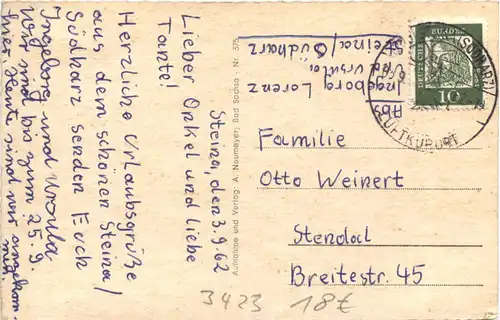 Steina, den 3.9.62
Lieber Onkel und liebe
Tante!
Herzliche Urlaubsgrüße
aus dem schönen Steina/
Südharz senden Euch
Ingeborg und Ursula
Wir sind bis zum 25.9.
hier. Heute sind wir angekom-
men.
Aufnahme und Verlag: A. Neumeyer, Bad Sachsa - Nr. 375
Abs.
Ingeborg Lorenz
Ursula
Steina/Südharz
DEUTSCHE
BUNDESPOST
10
(SÜDHARZ)
LUFTKURORT
Familie
Otto Weinert
Stendal
Breitestr. 45
3423
18€